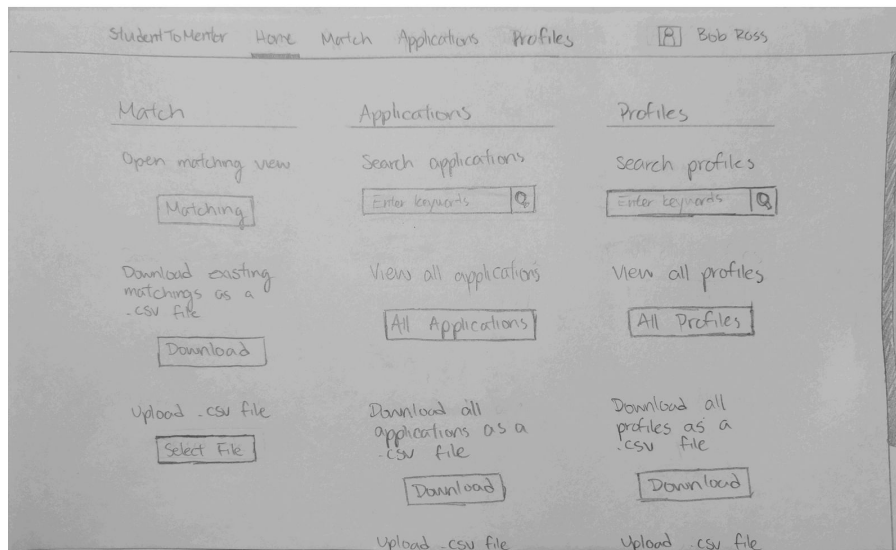 StudentToMentor Home Match Applications Profiles Bob Ross
Match
Open matching view
Matching
Download existing
matchings as a
.csv file
Download
Upload .csv file
Select File
Applications
Search applications
Enter keywords
View all applications
All Applications
Download all
applications as a
.csv file
Download
Upload .csv file
Profiles
Search profiles
Enter keywords
View all profiles
All Profiles
Download all
profiles as a
.csv file
Download
Upload .csv file